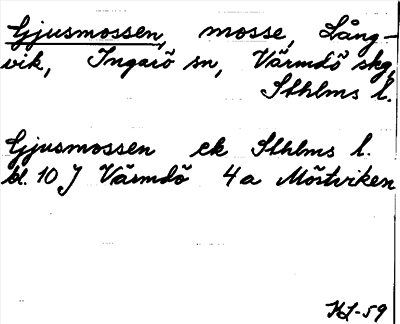 Gjusmossen, mosse, Lång-
vik, Ingarö sn, Värmdö skg,
Sthlms l.
Gjusmossen ek Sthlms l.
bl. 10 J Värmdö 4a Möstviken
KL-59